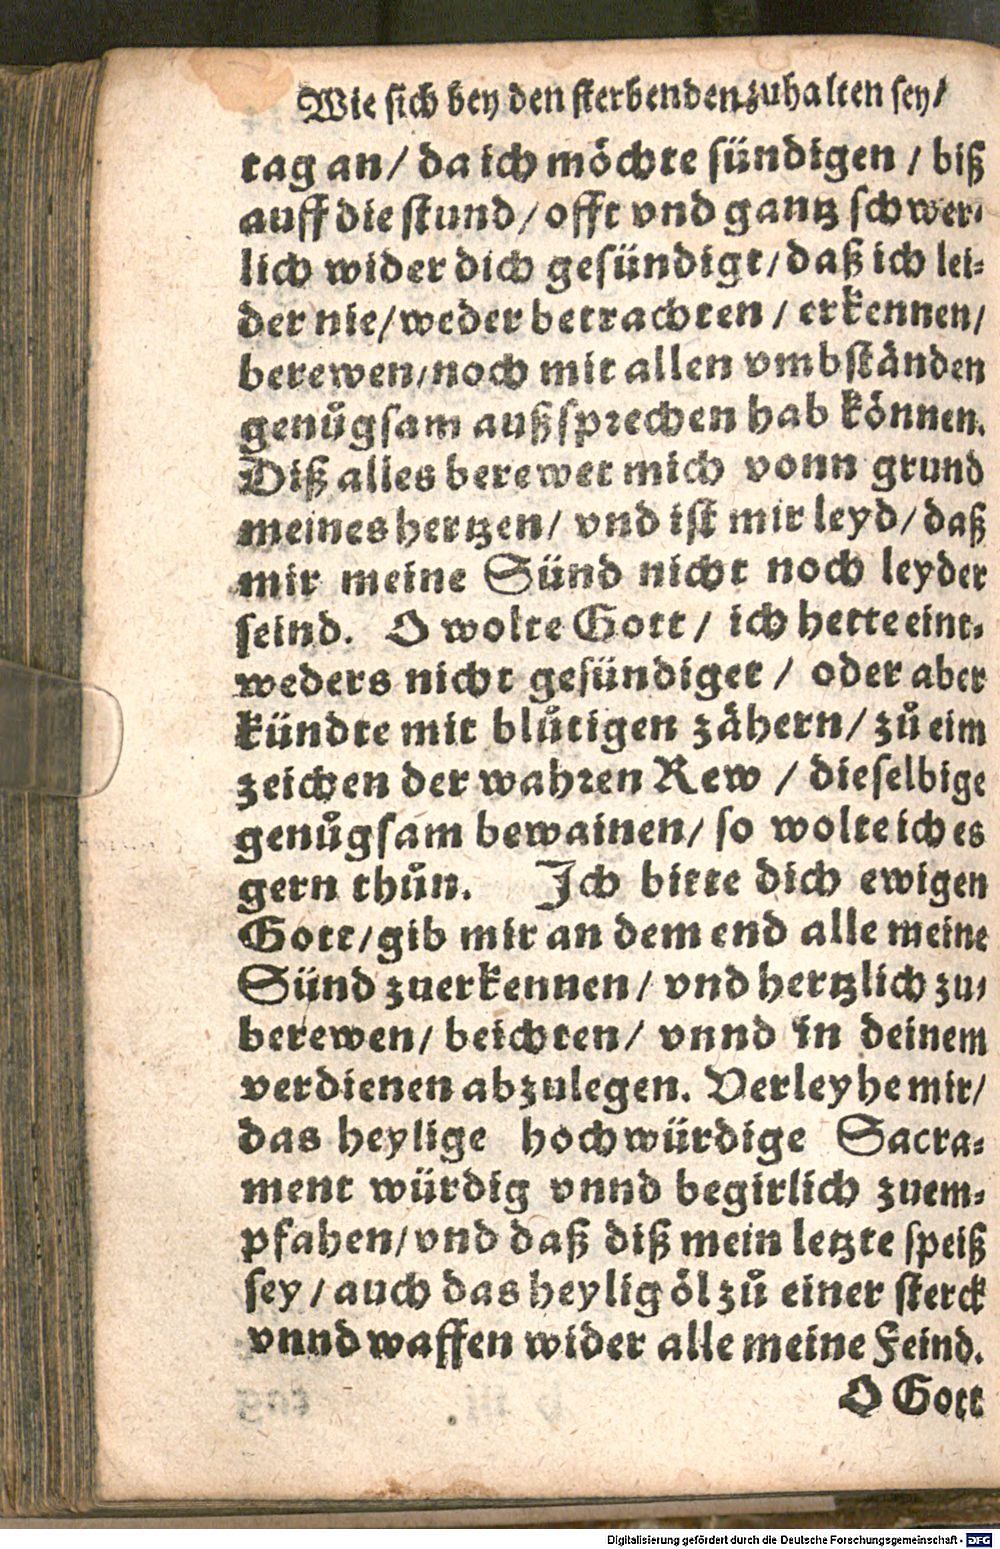 Wie sich bey den sterbenden zuhalten sey/
tag an/ da ich möchte sündigen / biß
auff die stund/ offt vnd gantz schwer-
lich wider dich gesündigt/ daß ich lei-
der nie/ weder betrachten / erkennen/
berewen/ noch mit allen vmbständen
genůgsam außsprechen hab können.
Diß alles berewet mich vonn grund
meines hertzen/ vnd ist mir leyd/ daß
mir meine Sünd nicht noch leyder
seind. O wolte Gott / ich hette eint-
weders nicht gesündiget / oder aber
kündte mit blůtigen zähern/ zů eim
zeichen der wahren Rew / dieselbige
genůgsam bewainen/ so wolte ich es
gern thůn. Ich bitte dich ewigen
Gott/ gib mir an dem end alle meine
Sünd zuerkennen/ vnd hertzlich zu-
berewen/ beichten/ vnnd in deinem
verdienen abzulegen. Verleyhe mir/
das heylige hochwürdige Sacra-
ment würdig vnnd begirlich zuem-
pfahen/ vnd daß diß mein letzte speiß
sey / auch das heylig öl zů einer sterck
vnnd waffen wider alle meine Feind.
O Gott
Digitalisierung gefördert durch die Deutsche Forschungsgemeinschaft - DFG